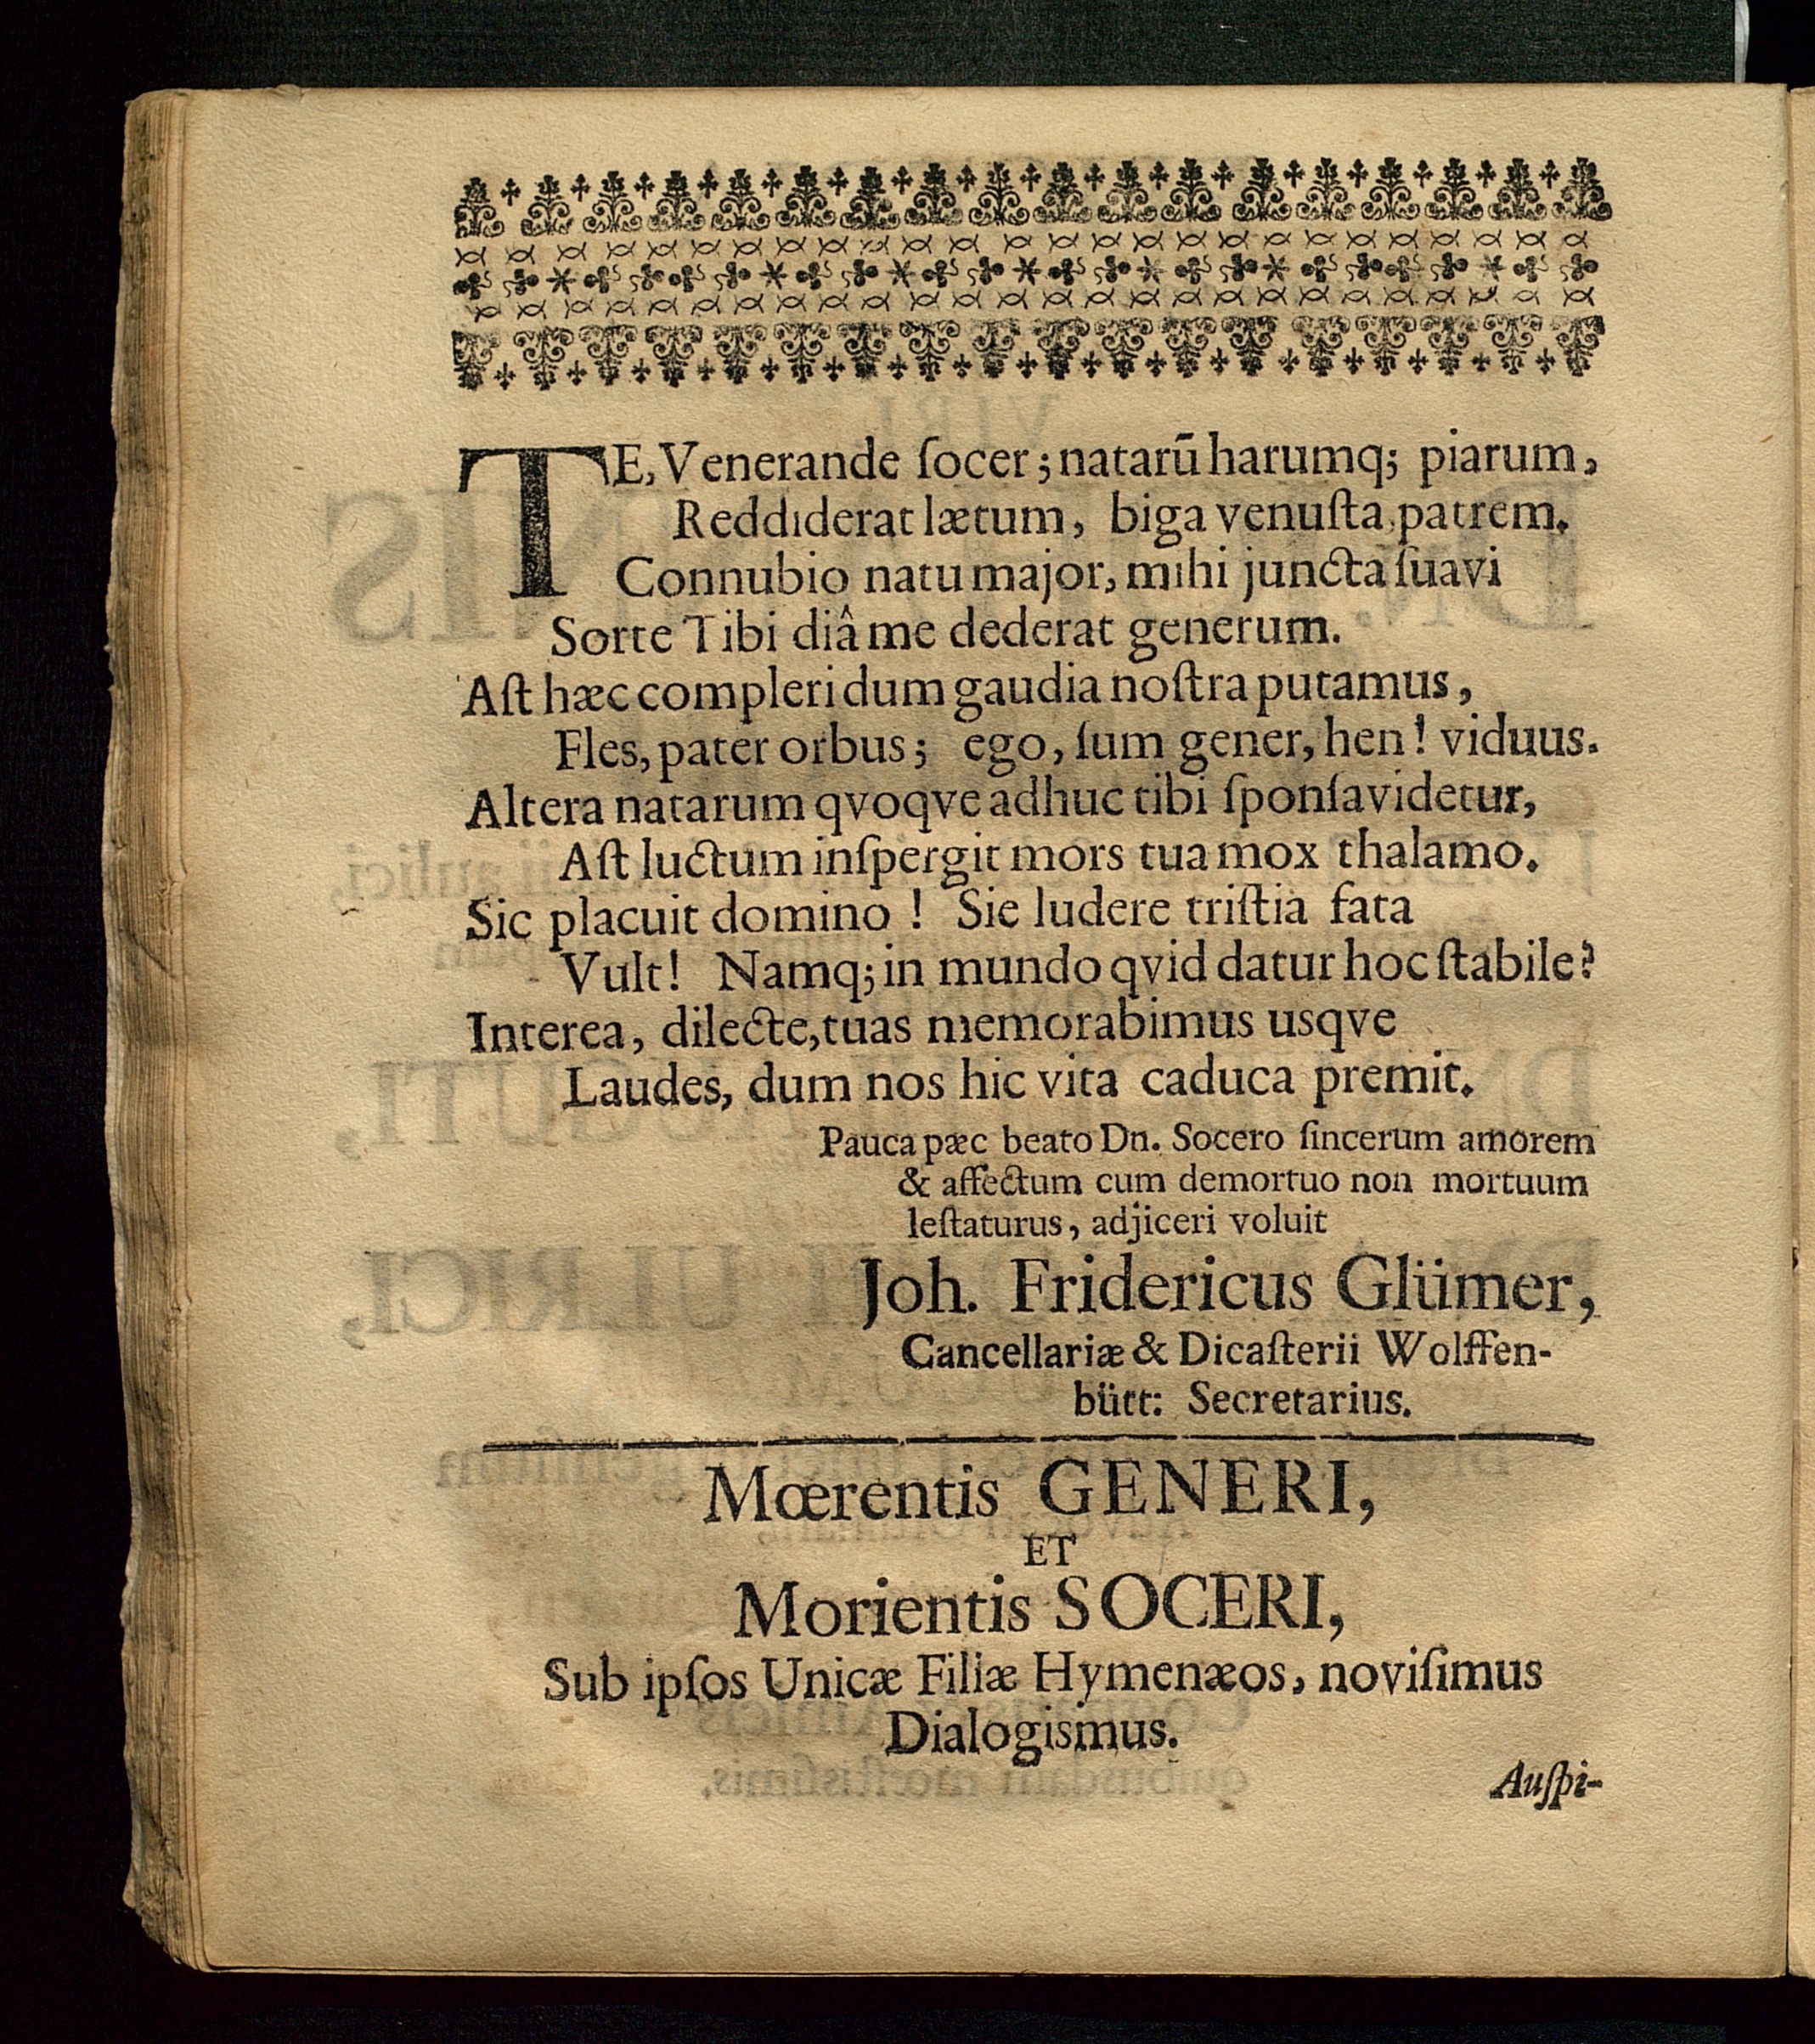 TE, Venerande ſocer; natarū harumq; piarum,
Reddiderat lætum, biga venuſta, patrem.
Connubio natu major, mihi juncta ſuavi
Sorte Tibi diâ me dederat generum.
Aſt hæc compleri dum gaudia noſtra putamus,
Fles, pater orbus; ego, ſum gener, hen! viduus.
Altera natarum qvoqve adhuc tibi ſponſa videtur,
Aſt luctum inſpergit mors tua mox thalamo.
Sic placuit domino! Sie ludere triſtia fata
Vult! Namq; in mundo qvid datur hoc ſtabile?
Interea, dilecte, tuas memorabimus usqve
Laudes, dum nos hic vita caduca premit.
Pauca pæc beato Dn. Socero ſincerum amorem
& affectum cum demortuo non mortuum
leſtaturus, adjiceri voluit
Joh. Fridericus Glümer,
Cancellariæ & Dicaſterii Wolffen-
bütt: Secretarius.
Mœrentis GENERI,
ET
Morientis SOCERI,
Sub ipſos Unicæ Filiæ Hymenæos, noviſimus
Dialogismus.
Auſpi-